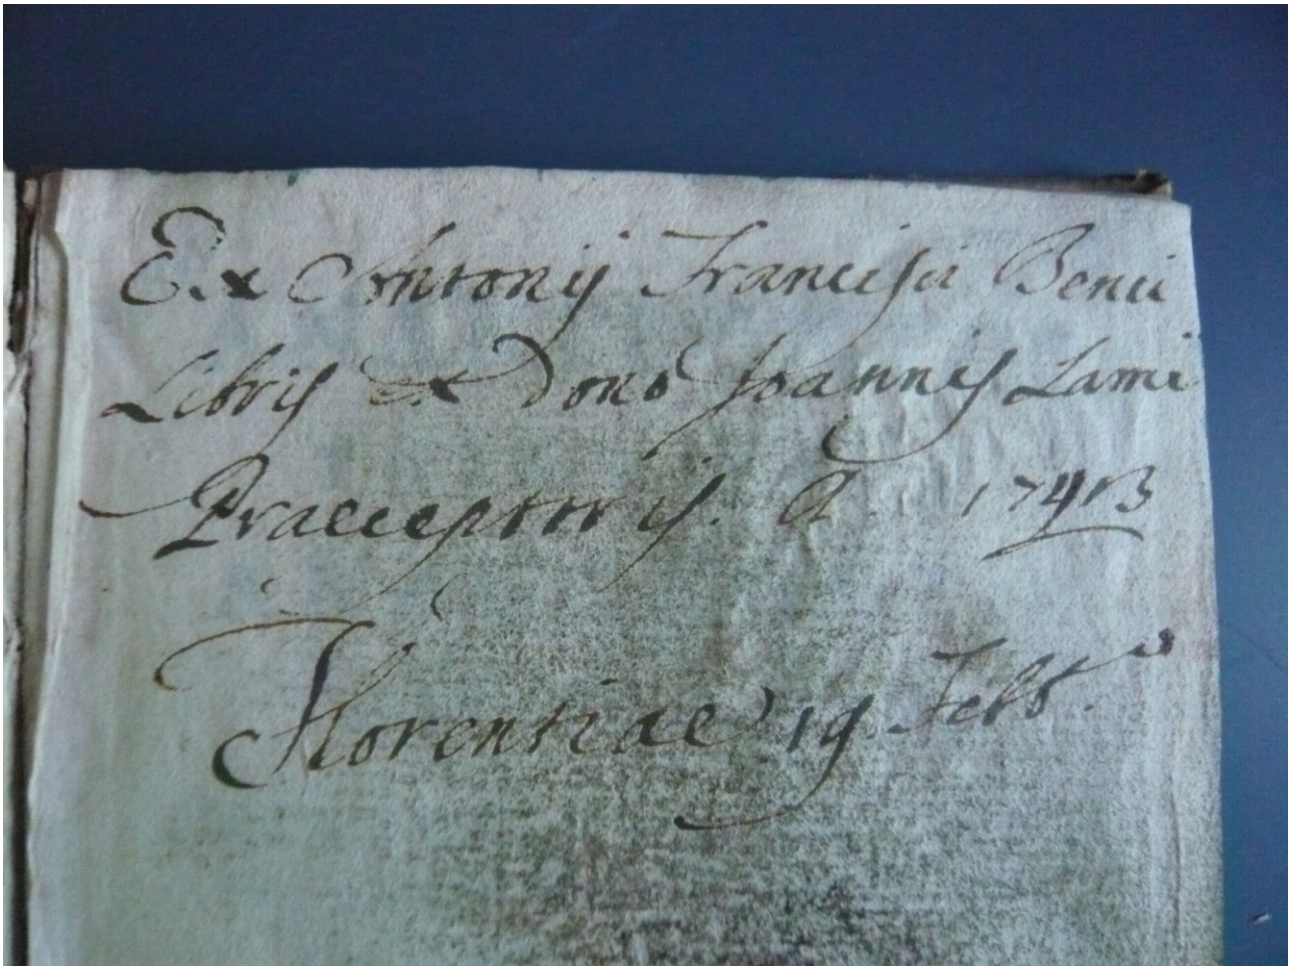 Ex Antonij Francisci Benci
Libris ex Dono Joannis Lami
Praeceptoris. A.
Florentiae 19 Feb